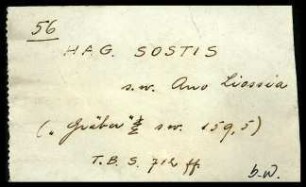 56
HAG. SOSTIS
s.w. Ano Liossia
(„Gräber" sw. 159,5)
T.B. S. 712 ff.
b.w.